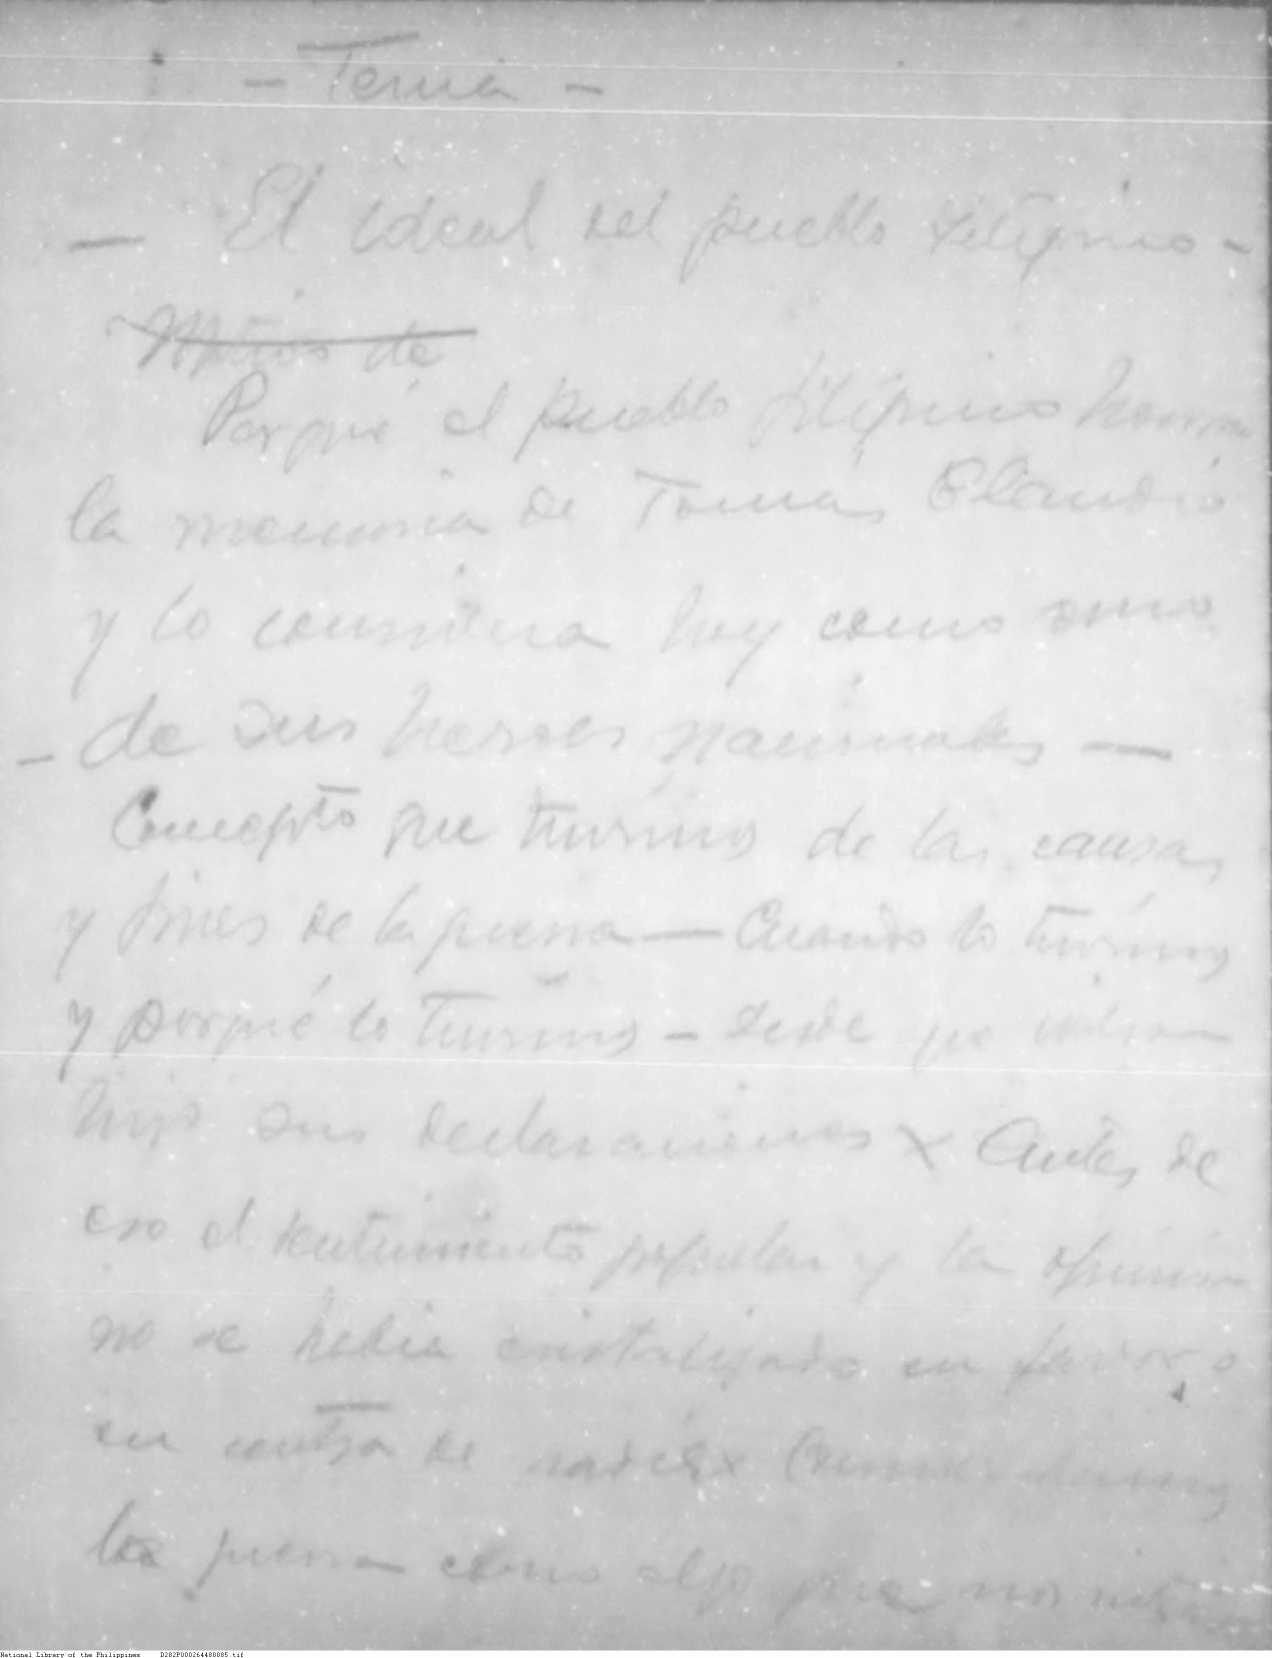 - Tema -
— El ideal del pueblo filipino -
Motivos de
Porqué el pueblo filipino honra
la memoria de Tomás Claudio
y lo considera hoy como uno
- de sus heroes nacionales —
Concepto que tuvimos de las causas
y fines de la guerra — Cuando lo tuvimos
y porqué lo tuvimos - desde que Wilson
hizo sus declaraciones x Antes de
eso el sentimiento popular y la opinion
no se habia cristalizado en favor o
en contra de nadie x
la guerra como algo que no
National Library of the Philippines D282P000264480085.tif